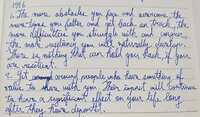 1. The more obstacles you face and overcome, the
more times you falter and get back on track, the
more difficulties you struggle with and conquer,
the more resiliency you will naturally develop.
There is nothing that can hold you back, if you
are resilient.
2. Get around people who have something of
value to share with you. Their impact will continue
to have a significant effect on your life long
after they have departed.